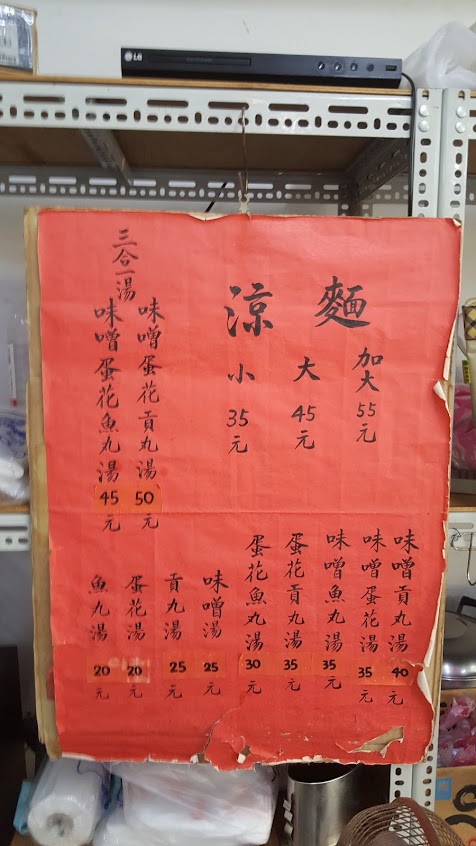 LG
涼麵
小 35元
大 45元
加大 55元
三合一湯
味噌蛋花魚丸湯 45元
味噌蛋花貢丸湯 50元
魚丸湯 20元
蛋花湯 20元
貢丸湯 25元
味噌湯 25元
蛋花魚丸湯 30元
蛋花貢丸湯 35元
味噌魚丸湯 35元
味噌蛋花湯 35元
味噌貢丸湯 40元